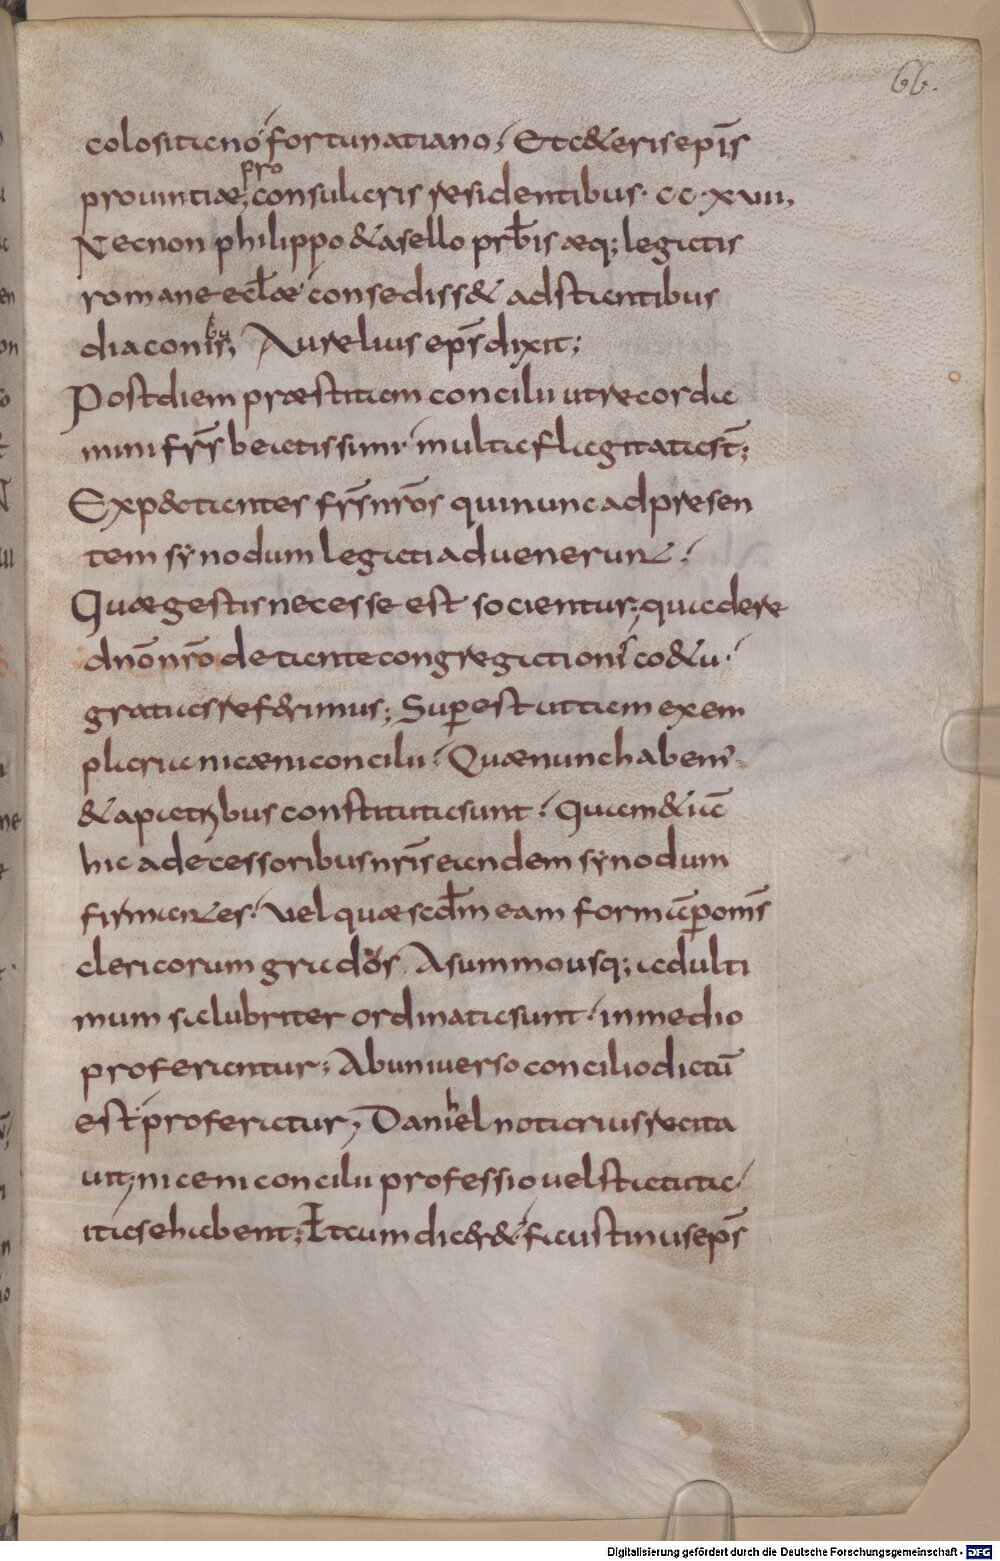 66.
colositano fortunatiano; Et ceteris epīs
prouintiae; proconsularis residentibus· cc·xvii,
Necnon philippo & asello prb̄is aeq; legatis
romane eccl̄ae consediss& adstantibus
diaconibus; Aurelius ep̄s dixit;
Post diem praestitam concilii ut recorda
mini fr̄s beatissimi· multa flagitata st̄;
Expectantes fr̄s nr̄os qui nunc ad presen
tem synodum legati aduenerunt·
Quae gestis necesse est socientur; quadere
dn̄o nr̄o de tante congregationis coetu·
gratias referimus; Superest ut tam exem
plaria nicaeni concilii· Quae nunc habem'
& a patribus constituta sunt· Quam etiā
hic adecessoribus nr̄is eandem synodum
firmantes· uel quae scd̄m eam formā p omīs
clericorum grados A summo usq; ad ulti
mum salubriter ordinata sunt· in medio
proferantur; Ab uniuerso concilio dictū
est· proferatur; Danihel notarius recita
uit; niceni concilii professio uel statuta
ita se habent; Et cum dicer& faustinus ep̄s
Digitalisierung gefördert durch die Deutsche Forschungsgemeinschaft - DFG